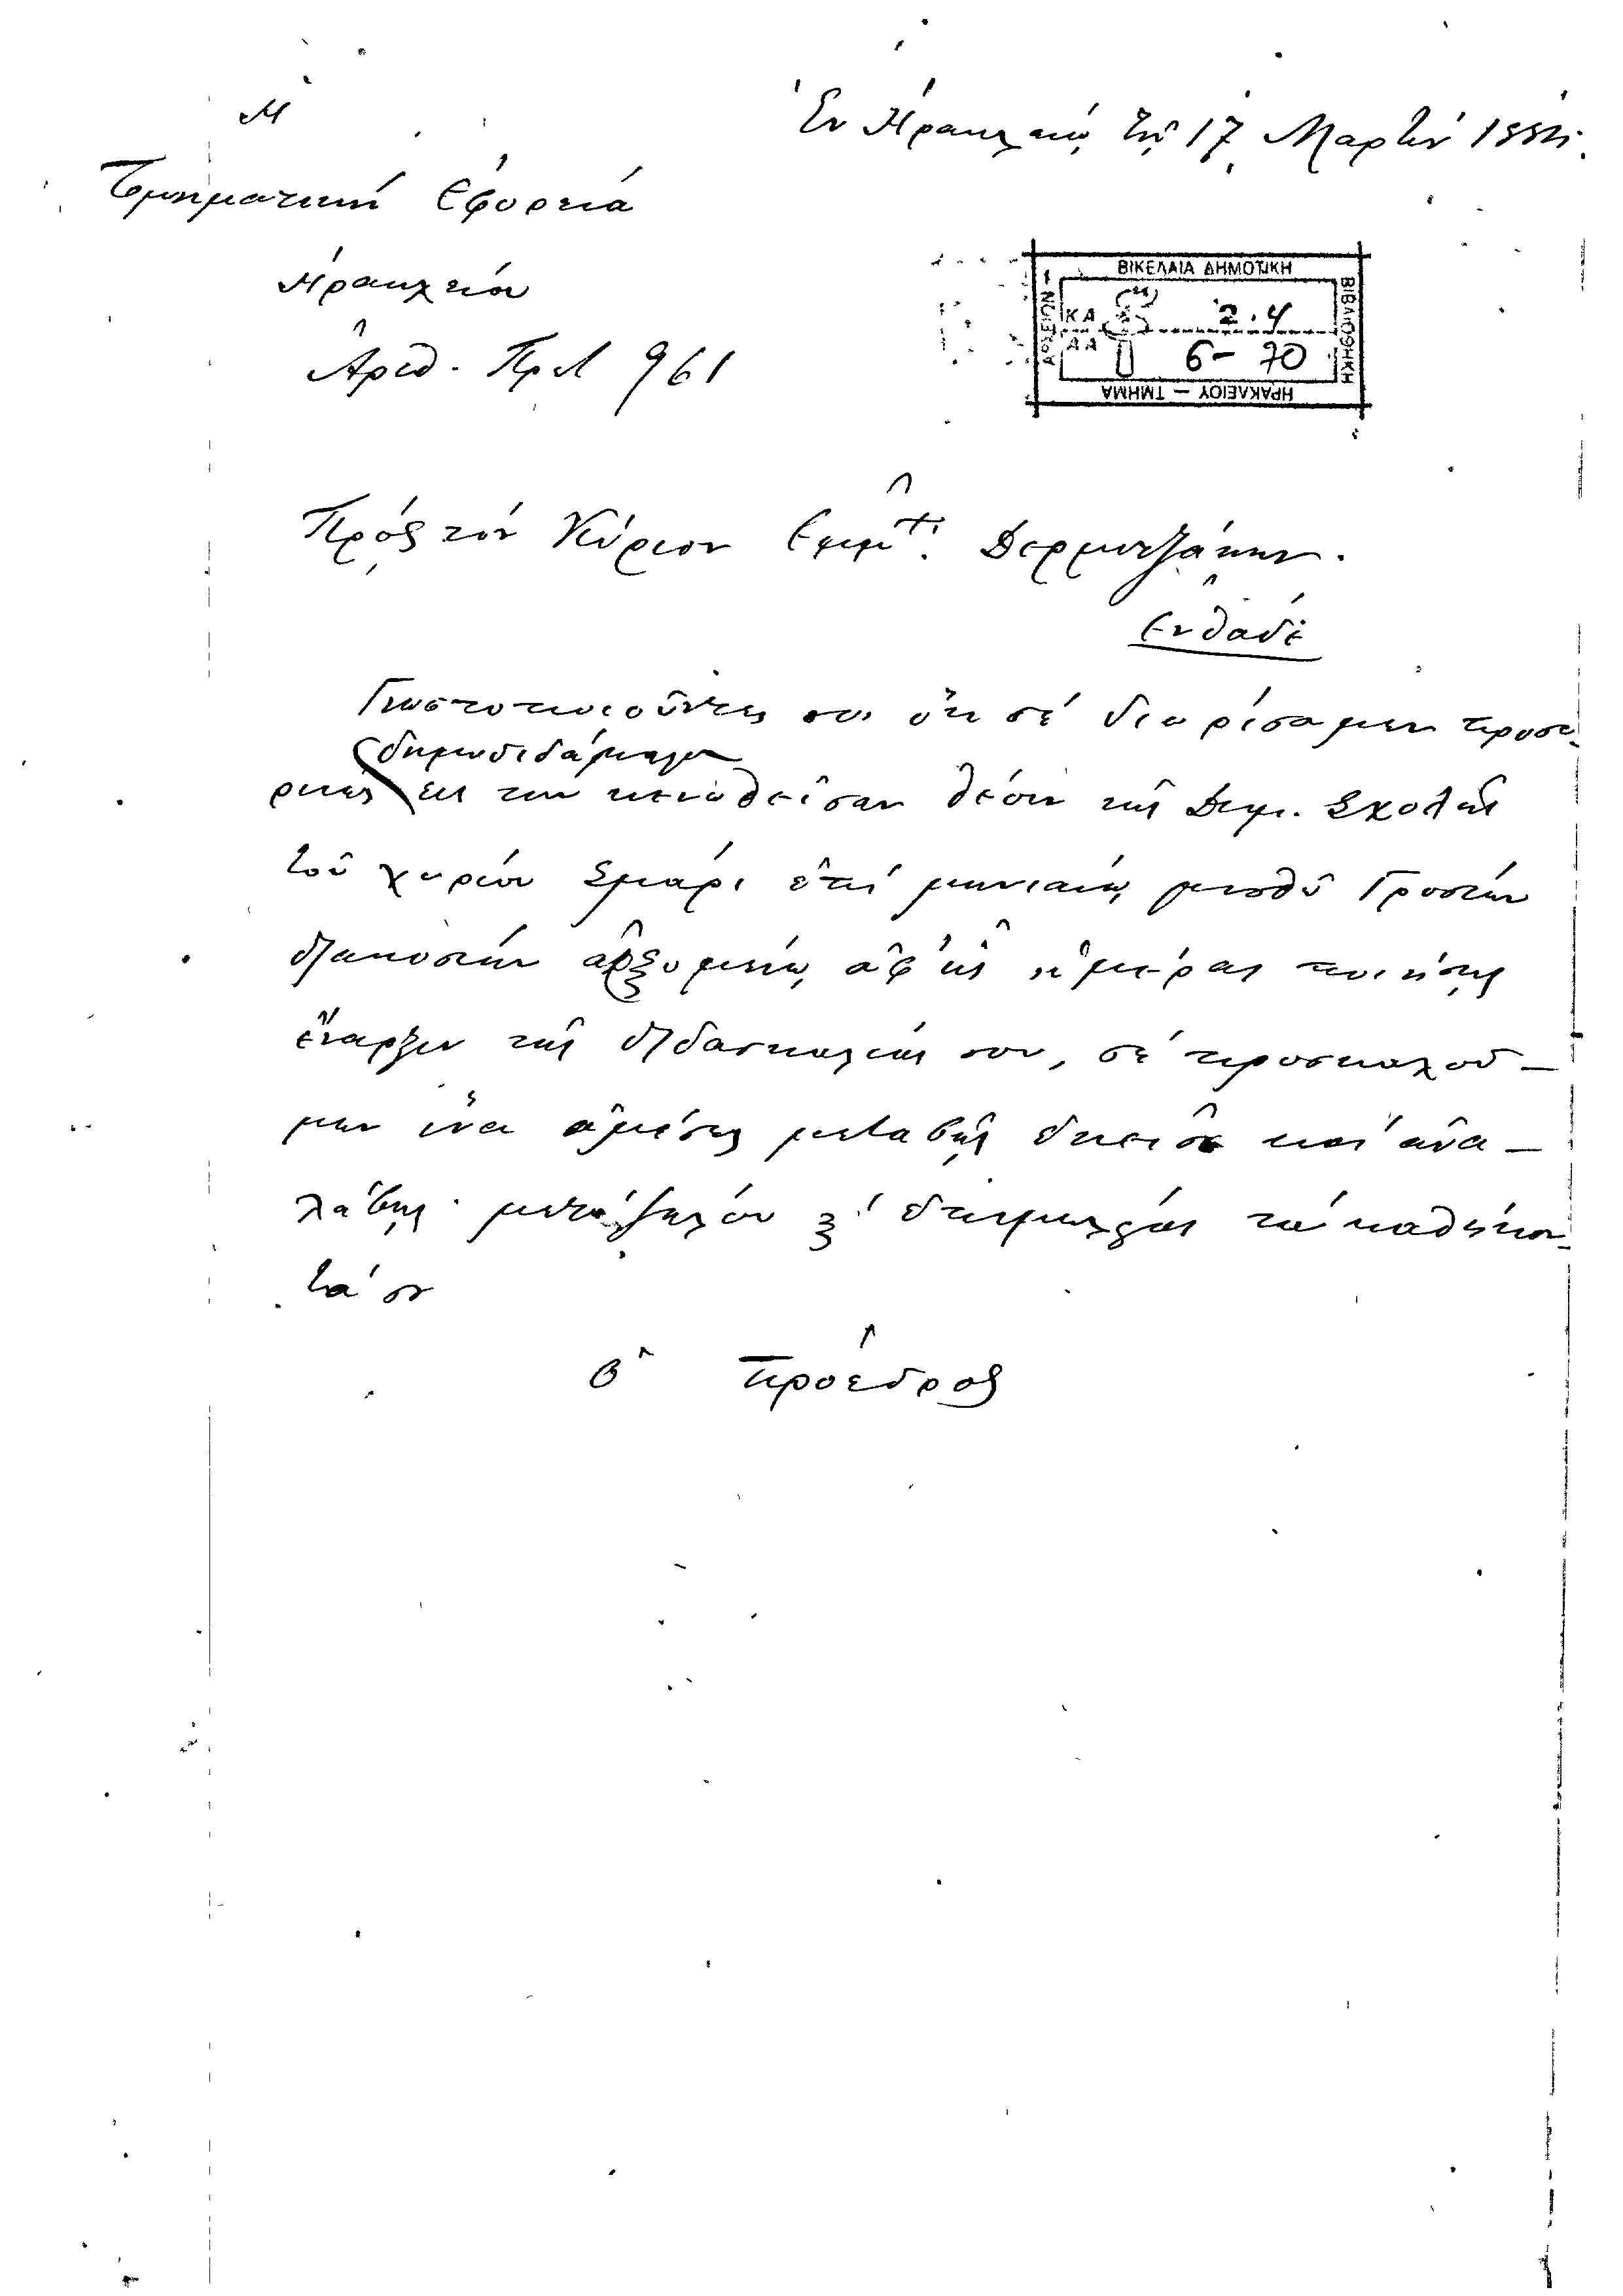 Ἐν Ἡρακλείῳ τῇ 17 Μαρτίου
Ἡ
Τμηματική Ἐφορεία
Ἡρακλείου
Ἀριθ. Πρωτ 961
ΒΙΚΕΛΑΙΑ ΔΗΜΟΤΙΚΗ
ΒΙΒΛΙΟΘΗΚΗ
ΗΡΑΚΛΕΙΟΥ — ΤΜΗΜΑ
ΑΡΧΕΙΩΝ
ΚΑ 2.4
ΑΑ 6-70
Πρός τόν Κύριον Ἐμμ. Δερμιτζάκην.
Ἐνθάδε
Γνωστοποιοῦντες σοι ὅτι σέ διορίσαμεν προσω-
δημοδιδάσκαλον
ρινῶς εἰς τήν κενωθεῖσαν θέσιν τῆς Δημ. Σχολῆς
τοῦ χωρίου Σμάρι ἐπί μηνιαίῳ μισθῷ Γροσίων
διακοσίων ἀρξομένῳ ἀφ' ἧς ἡμέρας ποιήσῃς
ἔναρξιν τῆς διδασκαλίας σου, σέ προσκαλοῦ-
μεν ἵνα ἀμέσως μεταβῇς ἐκεῖσε καί ἀνα-
λάβῃς μετά ζήλου κ' ἐπιμελείας τά καθήκον-
τά σου
Ὁ Πρόεδρος